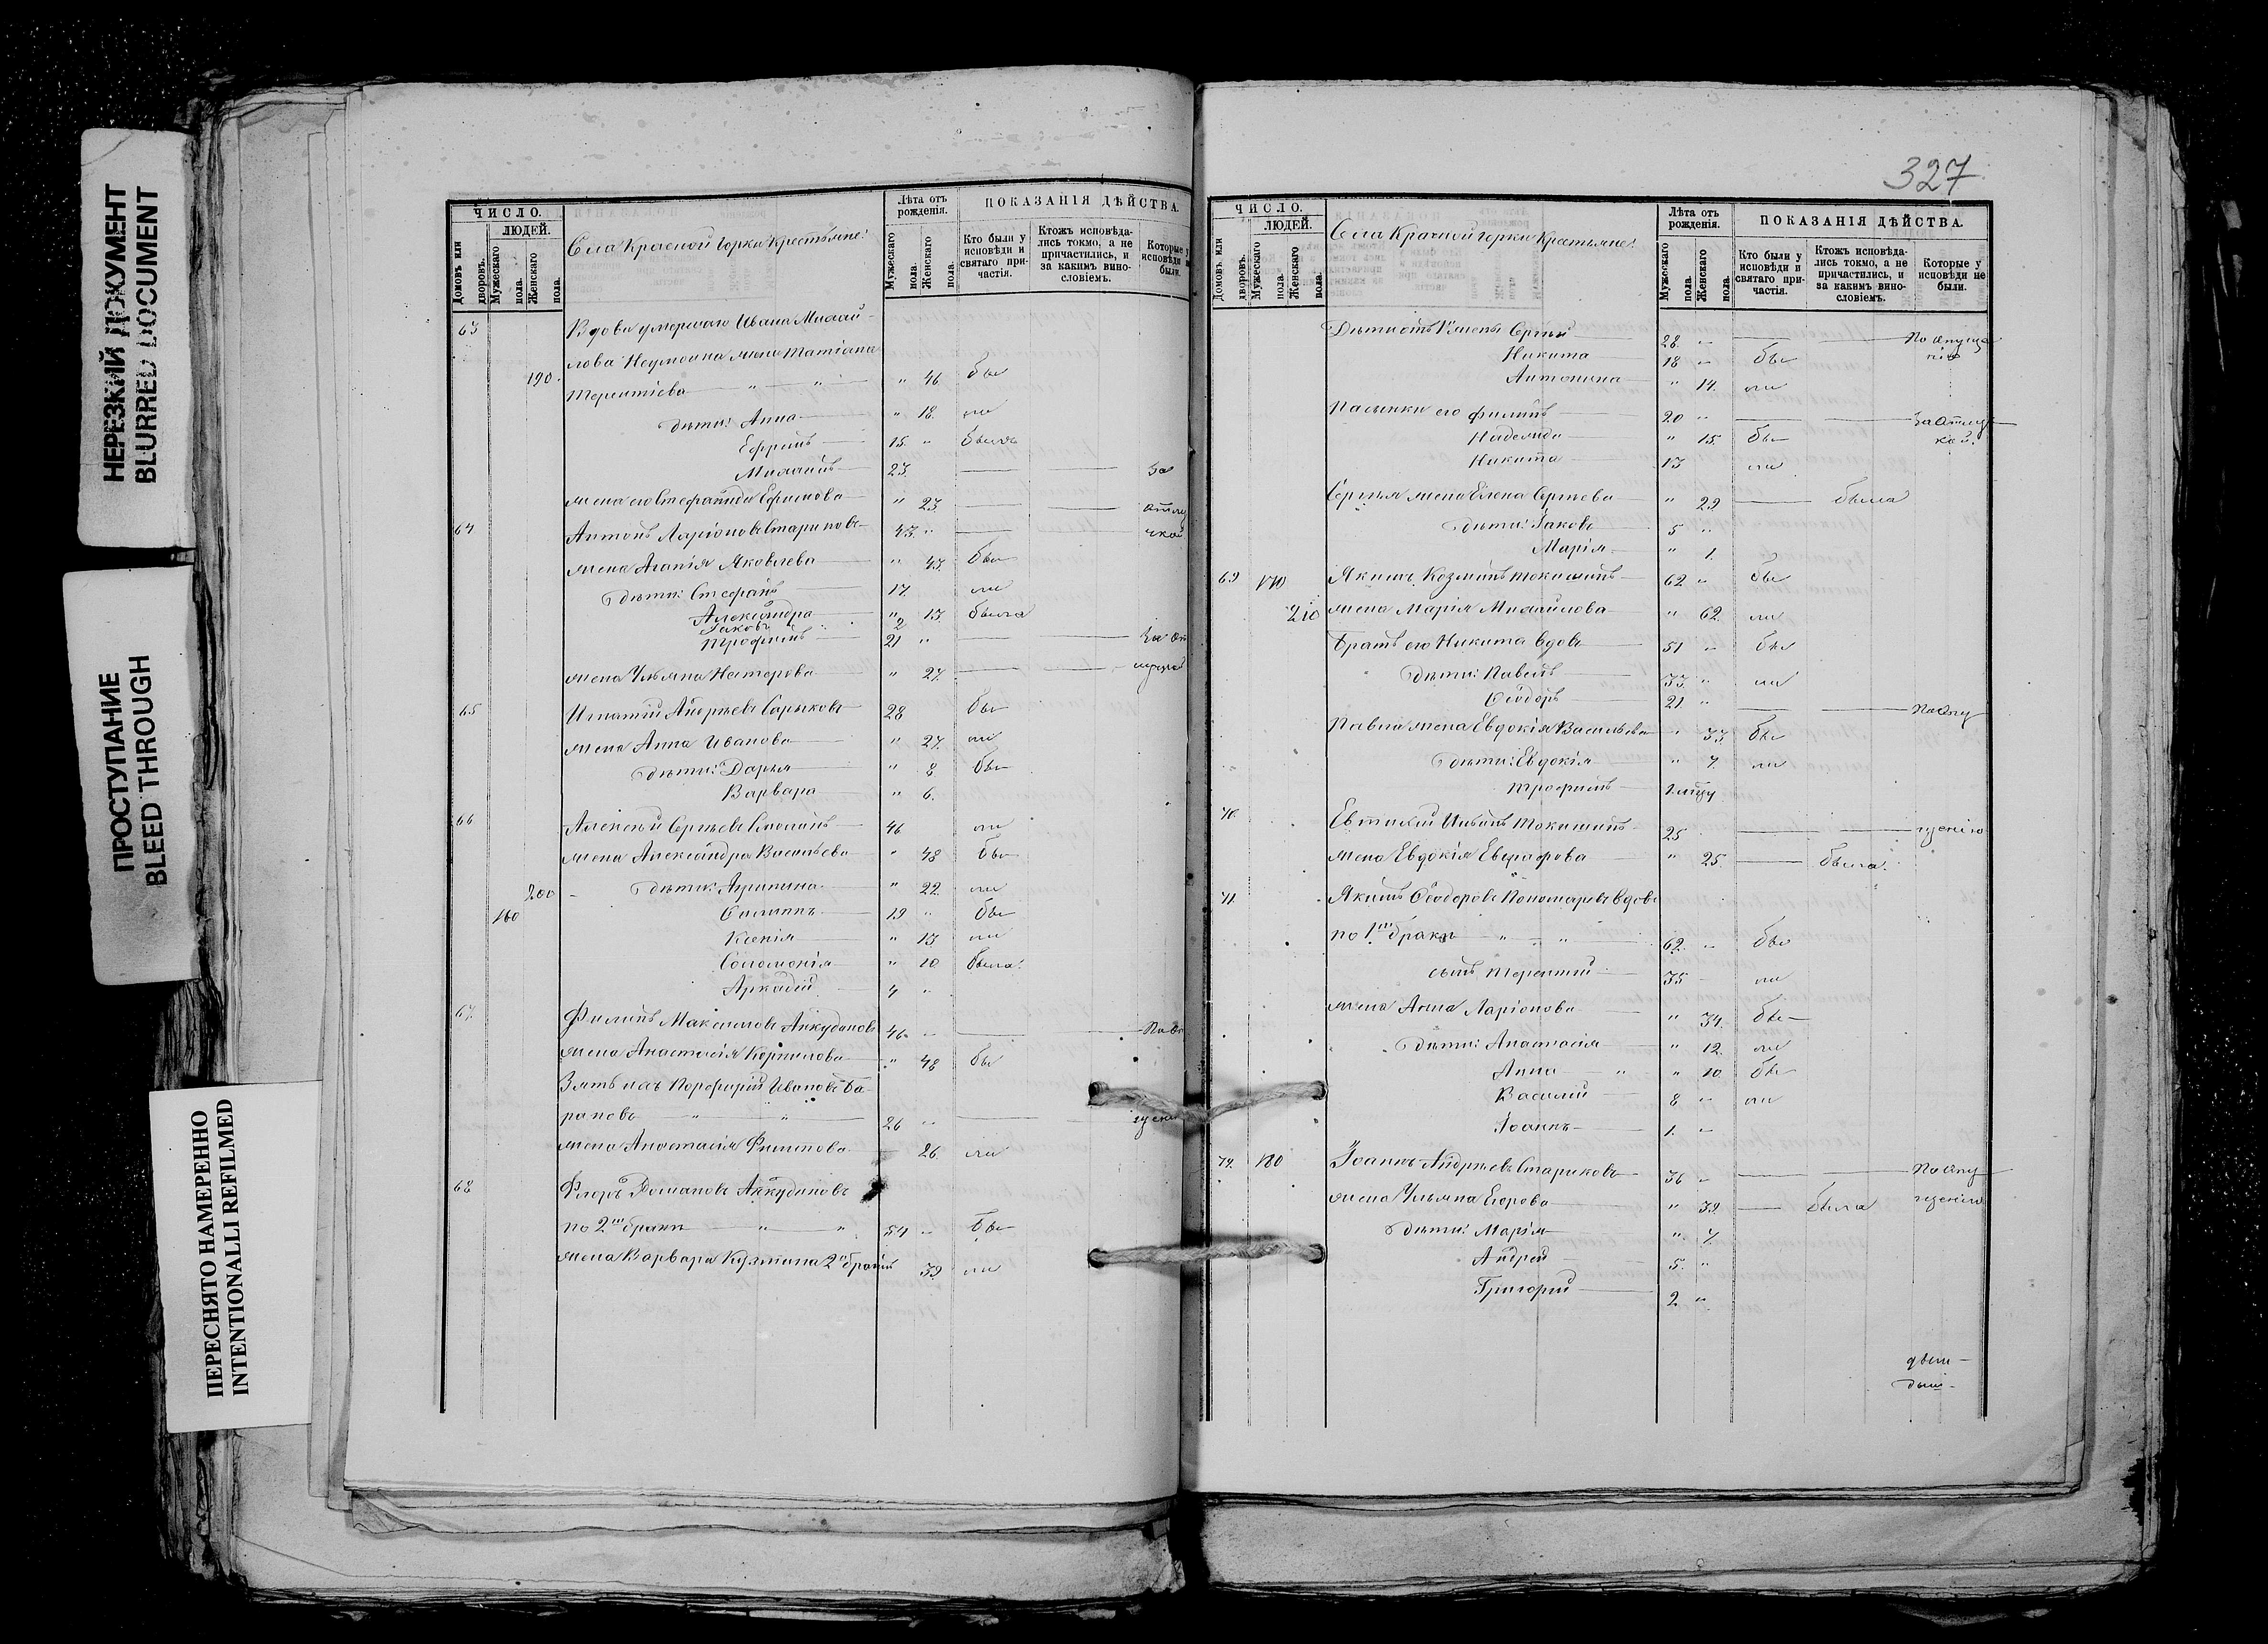 НЕРЕЗКИЙ ДОКУМЕНТ
BLURRED DOCUMENT
ПРОСТУПАНИЕ
BLEED THROUGH
ПЕРЕСНЯТО НАМЕРЕННО
INTENTIONALLI REFILMED
ЧИСЛО.
ЛЮДЕЙ.
Домовъ или дворовъ.
Мужескаго пола.
Женскаго пола.
Села Красной Горки Крестьяне:
Лѣта отъ рожденія.
Мужескаго пола.
Женскаго пола.
ПОКАЗАНІЯ ДѢЙСТВА.
Кто были у исповѣди и святаго причастія.
Ктожъ исповѣдались токмо, а не причастились, и за какимъ винословіемъ.
Которые у исповѣди не были.
63 Вдова умершаго Ивана Михай-
лова Наумова жена Татіана
190. Терентіева " 46 бы
дѣти: Анна " 18. ли
Ефремъ 15. " былъ
Михаилъ 23. за
жена его Стефанида Ефимова " 23 отлу
64 Антонъ Ларіоновъ Стариковъ 43. " чкой
жена Агапія Яковлева " 43. бы
дѣти: Стефанъ 17. ли
Александра " 13. была
Іаковъ 2
Трофимъ 21 " За от
жена Ульяна Нестерова " 27. лучкой
65 Игнатій Андреевъ Сарыковъ 28 бы
жена Анна Иванова " 27. ли
дѣти: Дарья " 8 бы
Варвара " 6.
66 Алексѣй Сергѣевъ 46 ли
жена Александра Васильева " 48 бы
200 дѣти: Агрипина " 22. ли
160 Филиппъ 19 " бы
Ксенія " 13 ли
Соломонія " 10 была.
Аркадій 4 "
67. Филипъ Максимовъ Анкудиновъ 46. " По о
жена Анастасія Корнилова " 48 бы
Зять ихъ Порфирій Ивановъ Ба-
рановъ " " 26 " пуск
жена Анастасія Филипова 26. ли
68 Флоръ Романовъ Анкудиновъ
по 2мъ бракѣ " " 54 " бы
жена Варвара Кузмина 2 39. ли
327
ЧИСЛО.
ЛЮДЕЙ.
Домовъ или дворовъ.
Мужескаго пола.
Женскаго пола.
Села Красной горки Крестьяне:
Лѣта отъ рожденія.
Мужескаго пола.
Женскаго пола.
ПОКАЗАНІЯ ДѢЙСТВА.
Кто были у исповѣди и святаго причастія.
Ктожъ исповѣдались токмо, а не причастились, и за какимъ винословіемъ.
Которые у исповѣди не были.
Дѣти отъ Сергѣй 28. " По опуще
Никита 18 " бы нію
Антонина " 14. ли
Пасынки его Филипъ 20 " За отлуч
Надежда " 15. бы кой.
Никита 13 ли
Сергѣя жена Елена Сергѣева " 29 была
дѣти: Іаковъ 5 "
Марія " 1.
69 170 Якимъ Козминъ Токшинъ 62 " бы
210 жена Марія Михайлова " 62. ли
Братъ его Никита вдовъ 51 " бы
дѣти: Павелъ 33. " ли
Ѳеодоръ 21. " По опу
Павла жена Евдокія Васильева " 33. бы
дѣти: Евдокія " 7. ли
Трофимъ
70. Евтихій Токшинъ 25 щенію
жена Евдокія Евграфова " 25. была.
71. Якимъ Ѳеодоровъ Пономаревъ вдовъ
по 1мъ бракѣ " " 62. " бы
сынъ Терентій 35 ли
жена Анна Ларіонова " 34. бы
дѣти: Анастасія " 12. ли
Анна " " 10. бы
Василій 8 " ли
Іоаннъ 1. "
72. 180 Іоаннъ Андреевъ Стариковъ 36 " По опу
жена Ульяна Егорова " 39. была щенію
дѣти: Марія " 7.
Андрей 5. "
Григорій 2 "